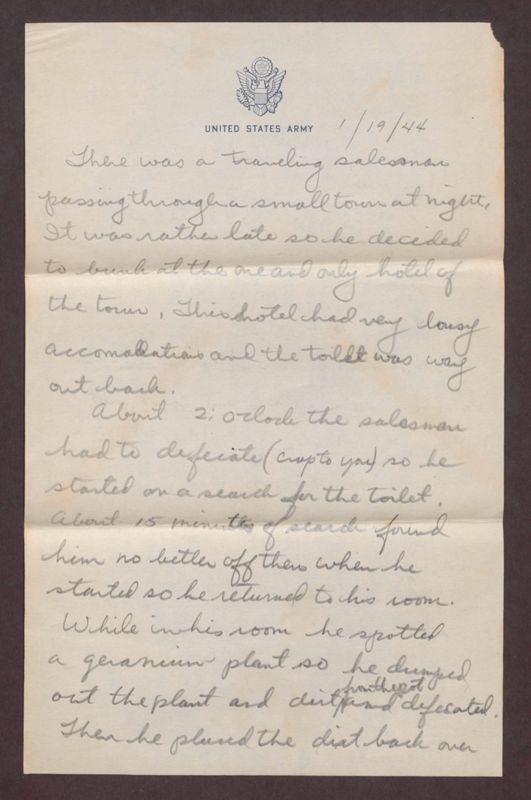 UNITED STATES ARMY
1/19/44
There was a traveling salesman
passing through a small town at night.
It was rather late so he decided
to bunk at the one and only hotel of
the town. This hotel had very lousy
accomadations and the toilet was way
out back.
About 2: oclock the salesman
had to defeciate (crap to you) so he
started on a search for the toilet.
About 15 minuttes of search found
him no better off then when he
started so he returned to his room.
While in his room he spotted
a geranium plant so he dumped
from the pot
out the plant and dirt and defecated.
Then he placed the dirt back over